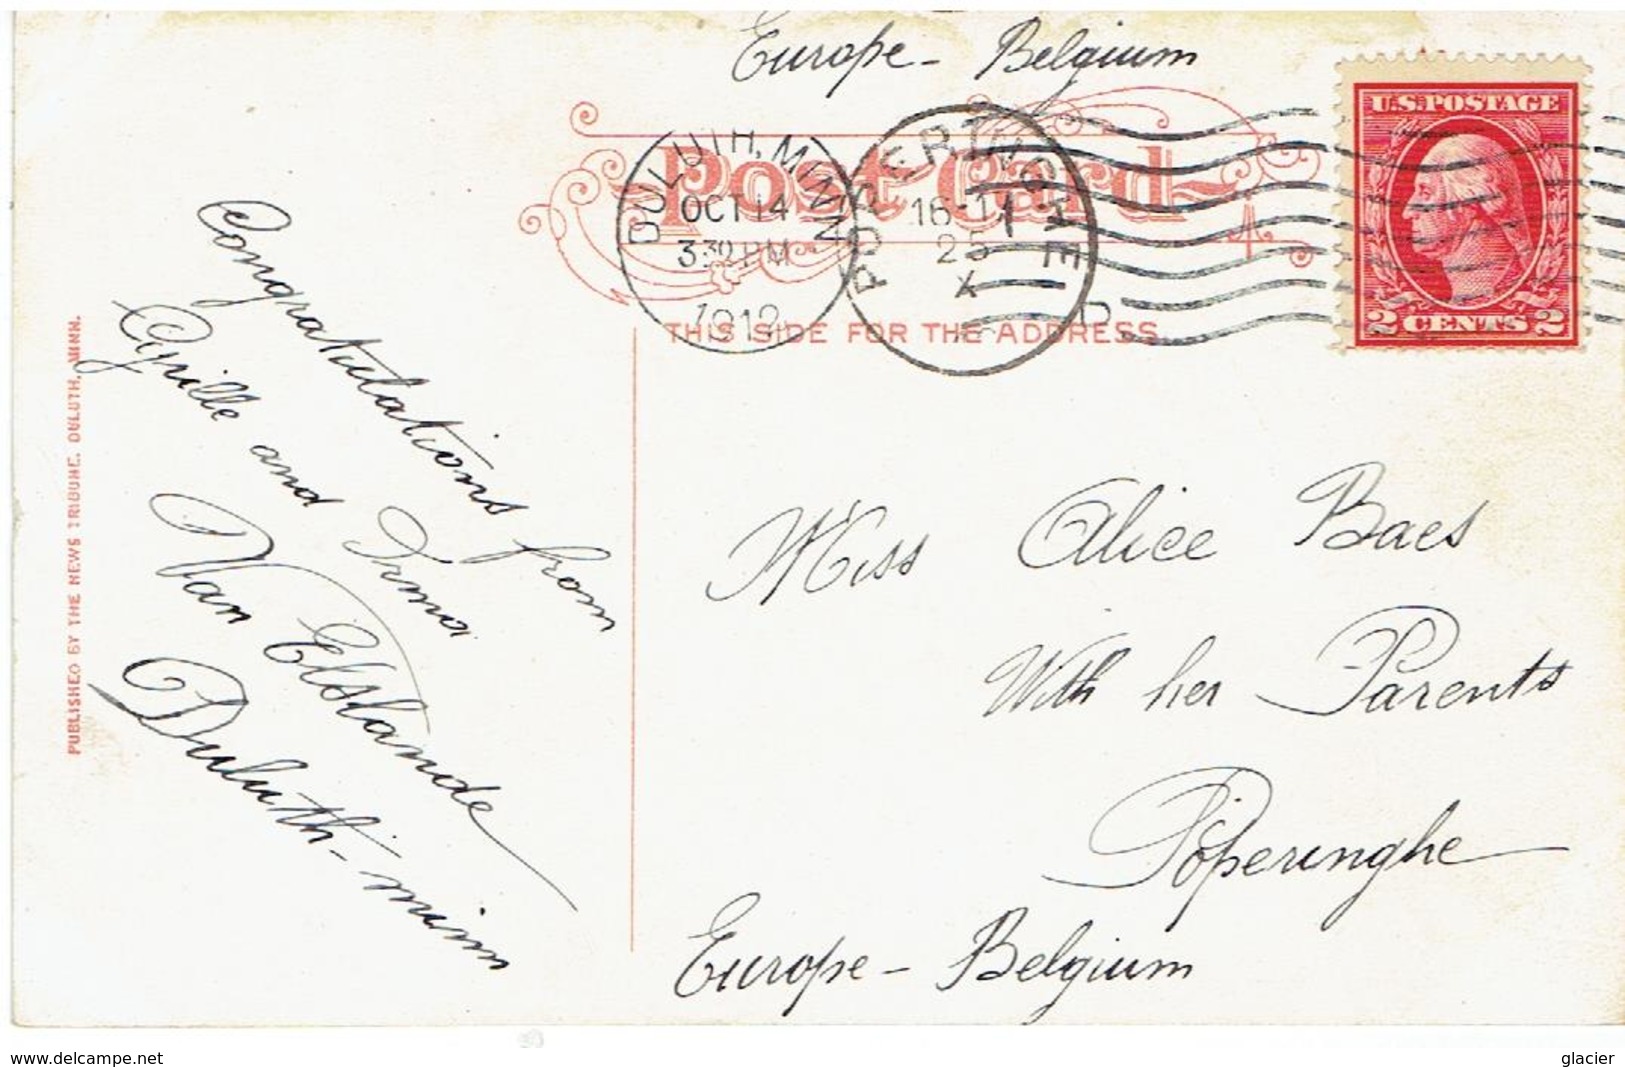 Europe - Belgium
U.S. POSTAGE
2 CENTS 2
Post Card
DULUTH, MINN
OCT 14
3 30 PM
1912
POPERINGHE
25
X
THIS SIDE FOR THE ADDRESS
Congratulations from
Cyrille and Irma
Van Elslande
Duluth - minn
Miss Alice Baes
With her Parents
Poperinghe
Europe - Belgium
PUBLISHED BY THE NEWS TRIBUNE. DULUTH, MINN.
www.delcampe.net
glacier